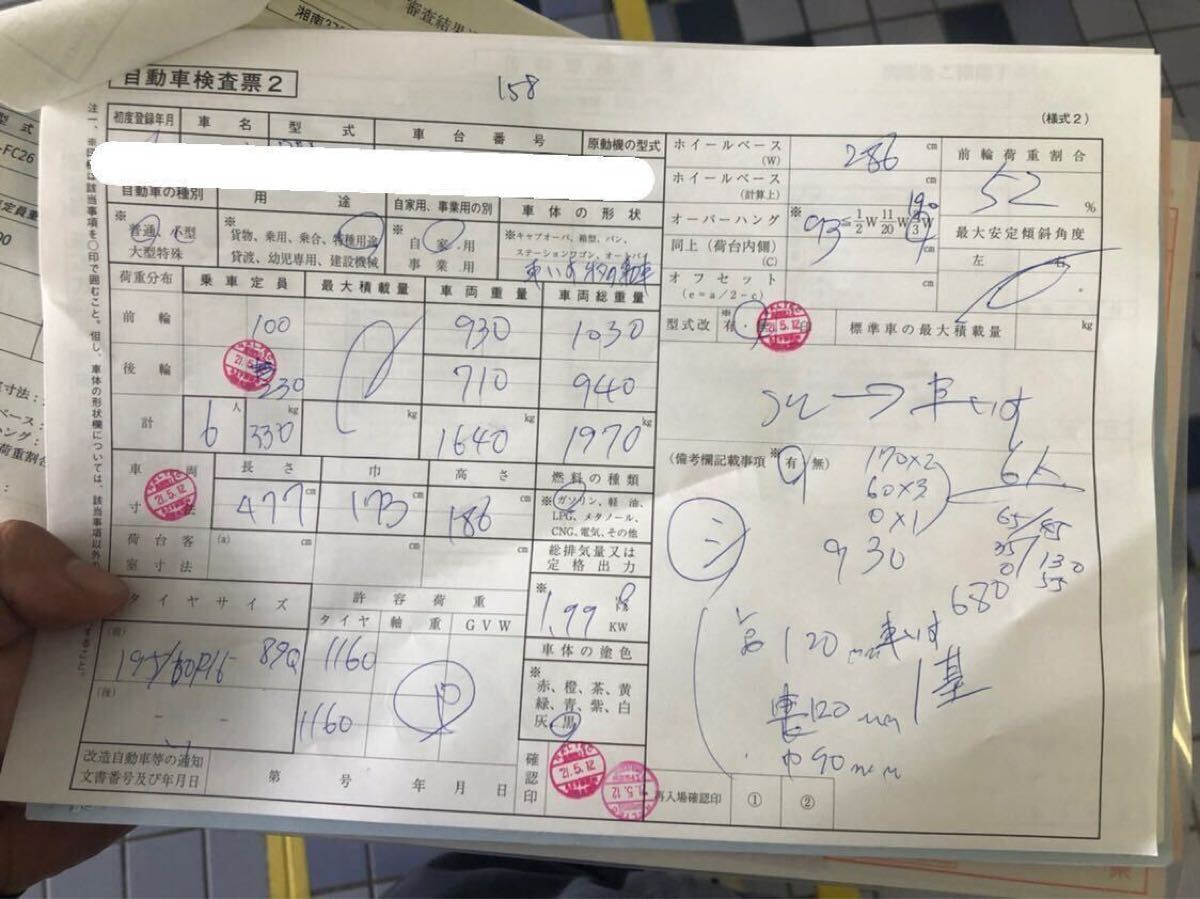 湘南
審査結果
型式
-FC26
自動車検査票2
158
(様式2)
初度登録年月 車名 型式 車台番号 原動機の型式
自動車の種別 用途 自家用、事業用の別 車体の形状
※ 普通、小型
大型特殊
※ 貨物、乗用、乗合、特種用途
貸渡、幼児専用、建設機械
※ 自家用
事業用
※キャブオーバ、箱型、バン、
ステーションワゴン、オートバイ
車いす移動車
荷重分布 乗車定員 最大積載量 車両重量 車両総重量
前輪 100 930 1030
後輪 230 710 940
21.5.12
計 6人 330kg kg 1640kg 1970kg
車両寸法 長さ 巾 高さ 燃料の種類
21.5.12
477cm 173cm 186cm
※ ガソリン、軽油、
LPG、メタノール、
CNG、電気、その他
荷台客室寸法 (a) cm cm cm
総排気量又は
定格出力
※ 1.99 KW
タイヤサイズ 許容荷重
タイヤ 軸重 GVW
(前) 195/60R15 89Q 1160
(後) - - 1160
車体の塗色
※
赤、橙、茶、黄
緑、青、紫、白
灰、黒
改造自動車等の通知
文書番号及び年月日
第 号 年 月 日
確認印
21.5.12
ホイールベース
(W)
286 cm
ホイールベース
(計算上)
cm
オーバーハング
※ 93≦1/2W 11/20W 2/3W
190
同上(荷台内側)
(C)
cm
オフセット
(e=a/2-c)
cm
前輪荷重割合
52 %
最大安定傾斜角度
左 右
型式改 ※有・無 印
21.5.12
標準車の最大積載量 kg
→車いす
(備考欄記載事項 ※有 無)
170×2
60×3
0×1
6人
930
65/85
35/130
0/55
680
120mm 車いす
1基
長120mm
巾90mm
再入場確認印 ① ②